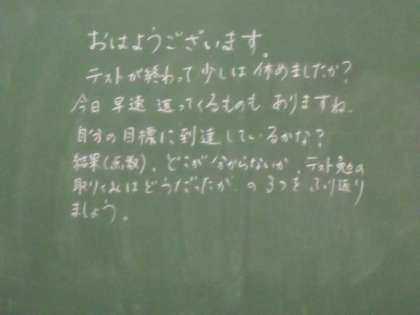 おはようございます。
テストが終わって少しは休めましたか?
今日早速返ってくるものもありますね。
自分の目標に到達しているかな?
結果(点数)、どこが分からないか、テスト勉の
取りくみはどうだったか の3つをふり返り
ましょう。